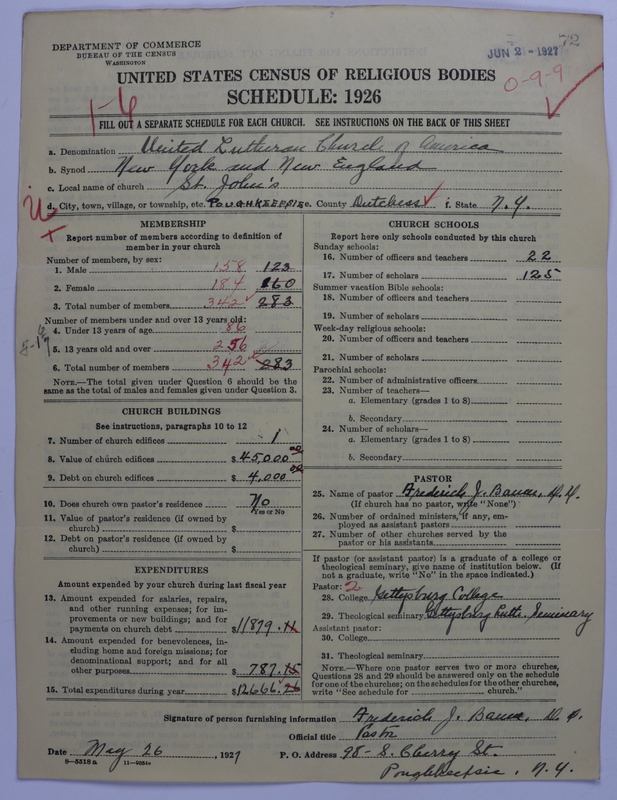 DEPARTMENT OF COMMERCE
BUREAU OF THE CENSUS
WASHINGTON
JUN 2 - 1927
72
UNITED STATES CENSUS OF RELIGIOUS BODIES
0-9-9
SCHEDULE: 1926
1-6
FILL OUT A SEPARATE SCHEDULE FOR EACH CHURCH. SEE INSTRUCTIONS ON THE BACK OF THIS SHEET
a. Denomination United Lutheran Church of America
b. Synod New York and New England
c. Local name of church St. John's
d. City, town, village, or township, etc. POUGHKEEPSIE e. County Dutchess f. State N.Y.
MEMBERSHIP
Report number of members according to definition of
member in your church
Number of members, by sex:
1. Male 158 123
2. Female 184 160
3. Total number of members 342 283
Number of members under and over 13 years old:
4. Under 13 years of age 86
5. 13 years old and over 256
6. Total number of members 342 283
NOTE.—The total given under Question 6 should be the
same as the total of males and females given under Question 3.
CHURCH BUILDINGS
See instructions, paragraphs 10 to 12
7. Number of church edifices 1
8. Value of church edifices $45,000 00
9. Debt on church edifices $4,000 00
10. Does church own pastor's residence No
Yes or No
11. Value of pastor's residence (if owned by
church) $
12. Debt on pastor's residence (if owned by
church) $
EXPENDITURES
Amount expended by your church during last fiscal year
13. Amount expended for salaries, repairs,
and other running expenses; for im-
provements or new buildings; and for
payments on church debt $11879.11
14. Amount expended for benevolences, in-
cluding home and foreign missions; for
denominational support; and for all
other purposes $787.15
15. Total expenditures during year $12666.26
CHURCH SCHOOLS
Report here only schools conducted by this church
Sunday schools:
16. Number of officers and teachers 22
17. Number of scholars 125
Summer vacation Bible schools:
18. Number of officers and teachers
19. Number of scholars
Week-day religious schools:
20. Number of officers and teachers
21. Number of scholars
Parochial schools:
22. Number of administrative officers
23. Number of teachers—
a. Elementary (grades 1 to 8)
b. Secondary
24. Number of scholars—
a. Elementary (grades 1 to 8)
b. Secondary
PASTOR
25. Name of pastor Frederick J. Bauer, D.D.
(If church has no pastor, write "None")
26. Number of ordained ministers, if any, em-
ployed as assistant pastors
27. Number of other churches served by the
pastor or his assistants
If pastor (or assistant pastor) is a graduate of a college or
theological seminary, give name of institution below. (If
not a graduate, write "No" in the space indicated.)
Pastor: 2
28. College Gettysburg College
29. Theological seminary Gettysburg Luth. Seminary
Assistant pastor:
30. College
31. Theological seminary
NOTE.—Where one pastor serves two or more churches,
Questions 28 and 29 should be answered only on the schedule
for one of the churches; on the schedules for the other churches,
write "See schedule for church."
Signature of person furnishing information Frederick J. Bauer, D.D.
Official title Pastor
Date May 26, 1927 P. O. Address 98 - S. Cherry St.
8—5518a 11—9054
Poughkeepsie, N.Y.